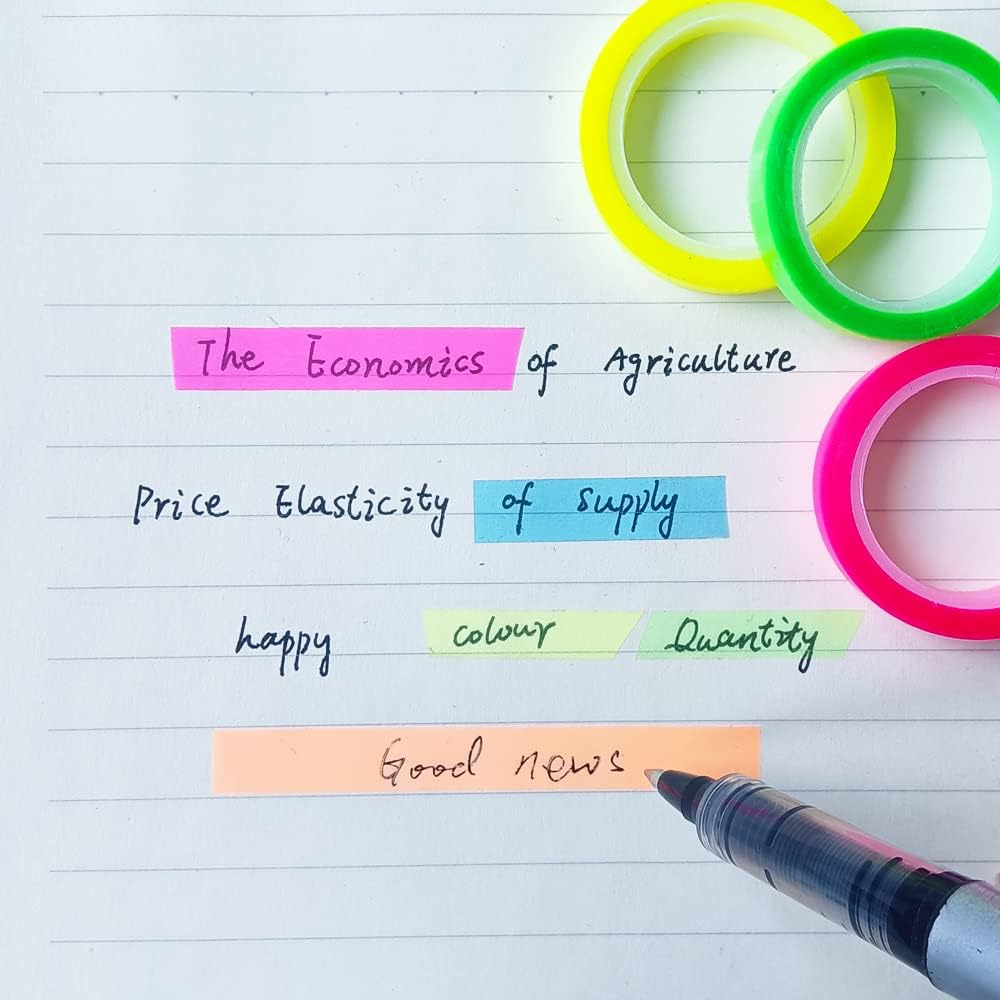 The Economics of Agriculture
Price Elasticity of supply
happy colour Quantity
Good news